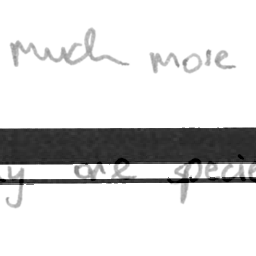 much more
y one specie